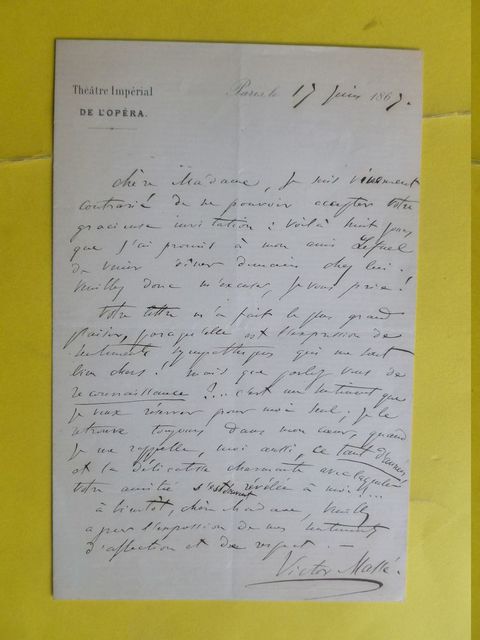 Théâtre Impérial
DE L'OPÉRA.
Paris, le 17 Juin 1867.
Chère Madame, je suis vivement
contrarié de ne pouvoir accepter votre
gracieuse invitation : voilà huit jours
que j'ai promis à mon ami
de venir dîner demain chez lui.
Veuillez donc m'excuser, je vous prie !
Votre lettre m'a fait le plus grand
plaisir, parce qu'elle est l'expression de
sentiments sympathiques qui me sont
bien chers ! mais que parlez vous de
reconnaissance ?... c'est un sentiment que
je veux réserver pour moi seul ; je le
retrouve toujours dans mon cœur, quand
je me rappelle, moi aussi, ce
et la délicatesse charmante avec laquelle
votre amitié s'est révélée à moi !...
à bientôt, chère Madame, veuillez
agréer l'expression de mes sentiments
d'affection et de respect. —
Victor Massé.